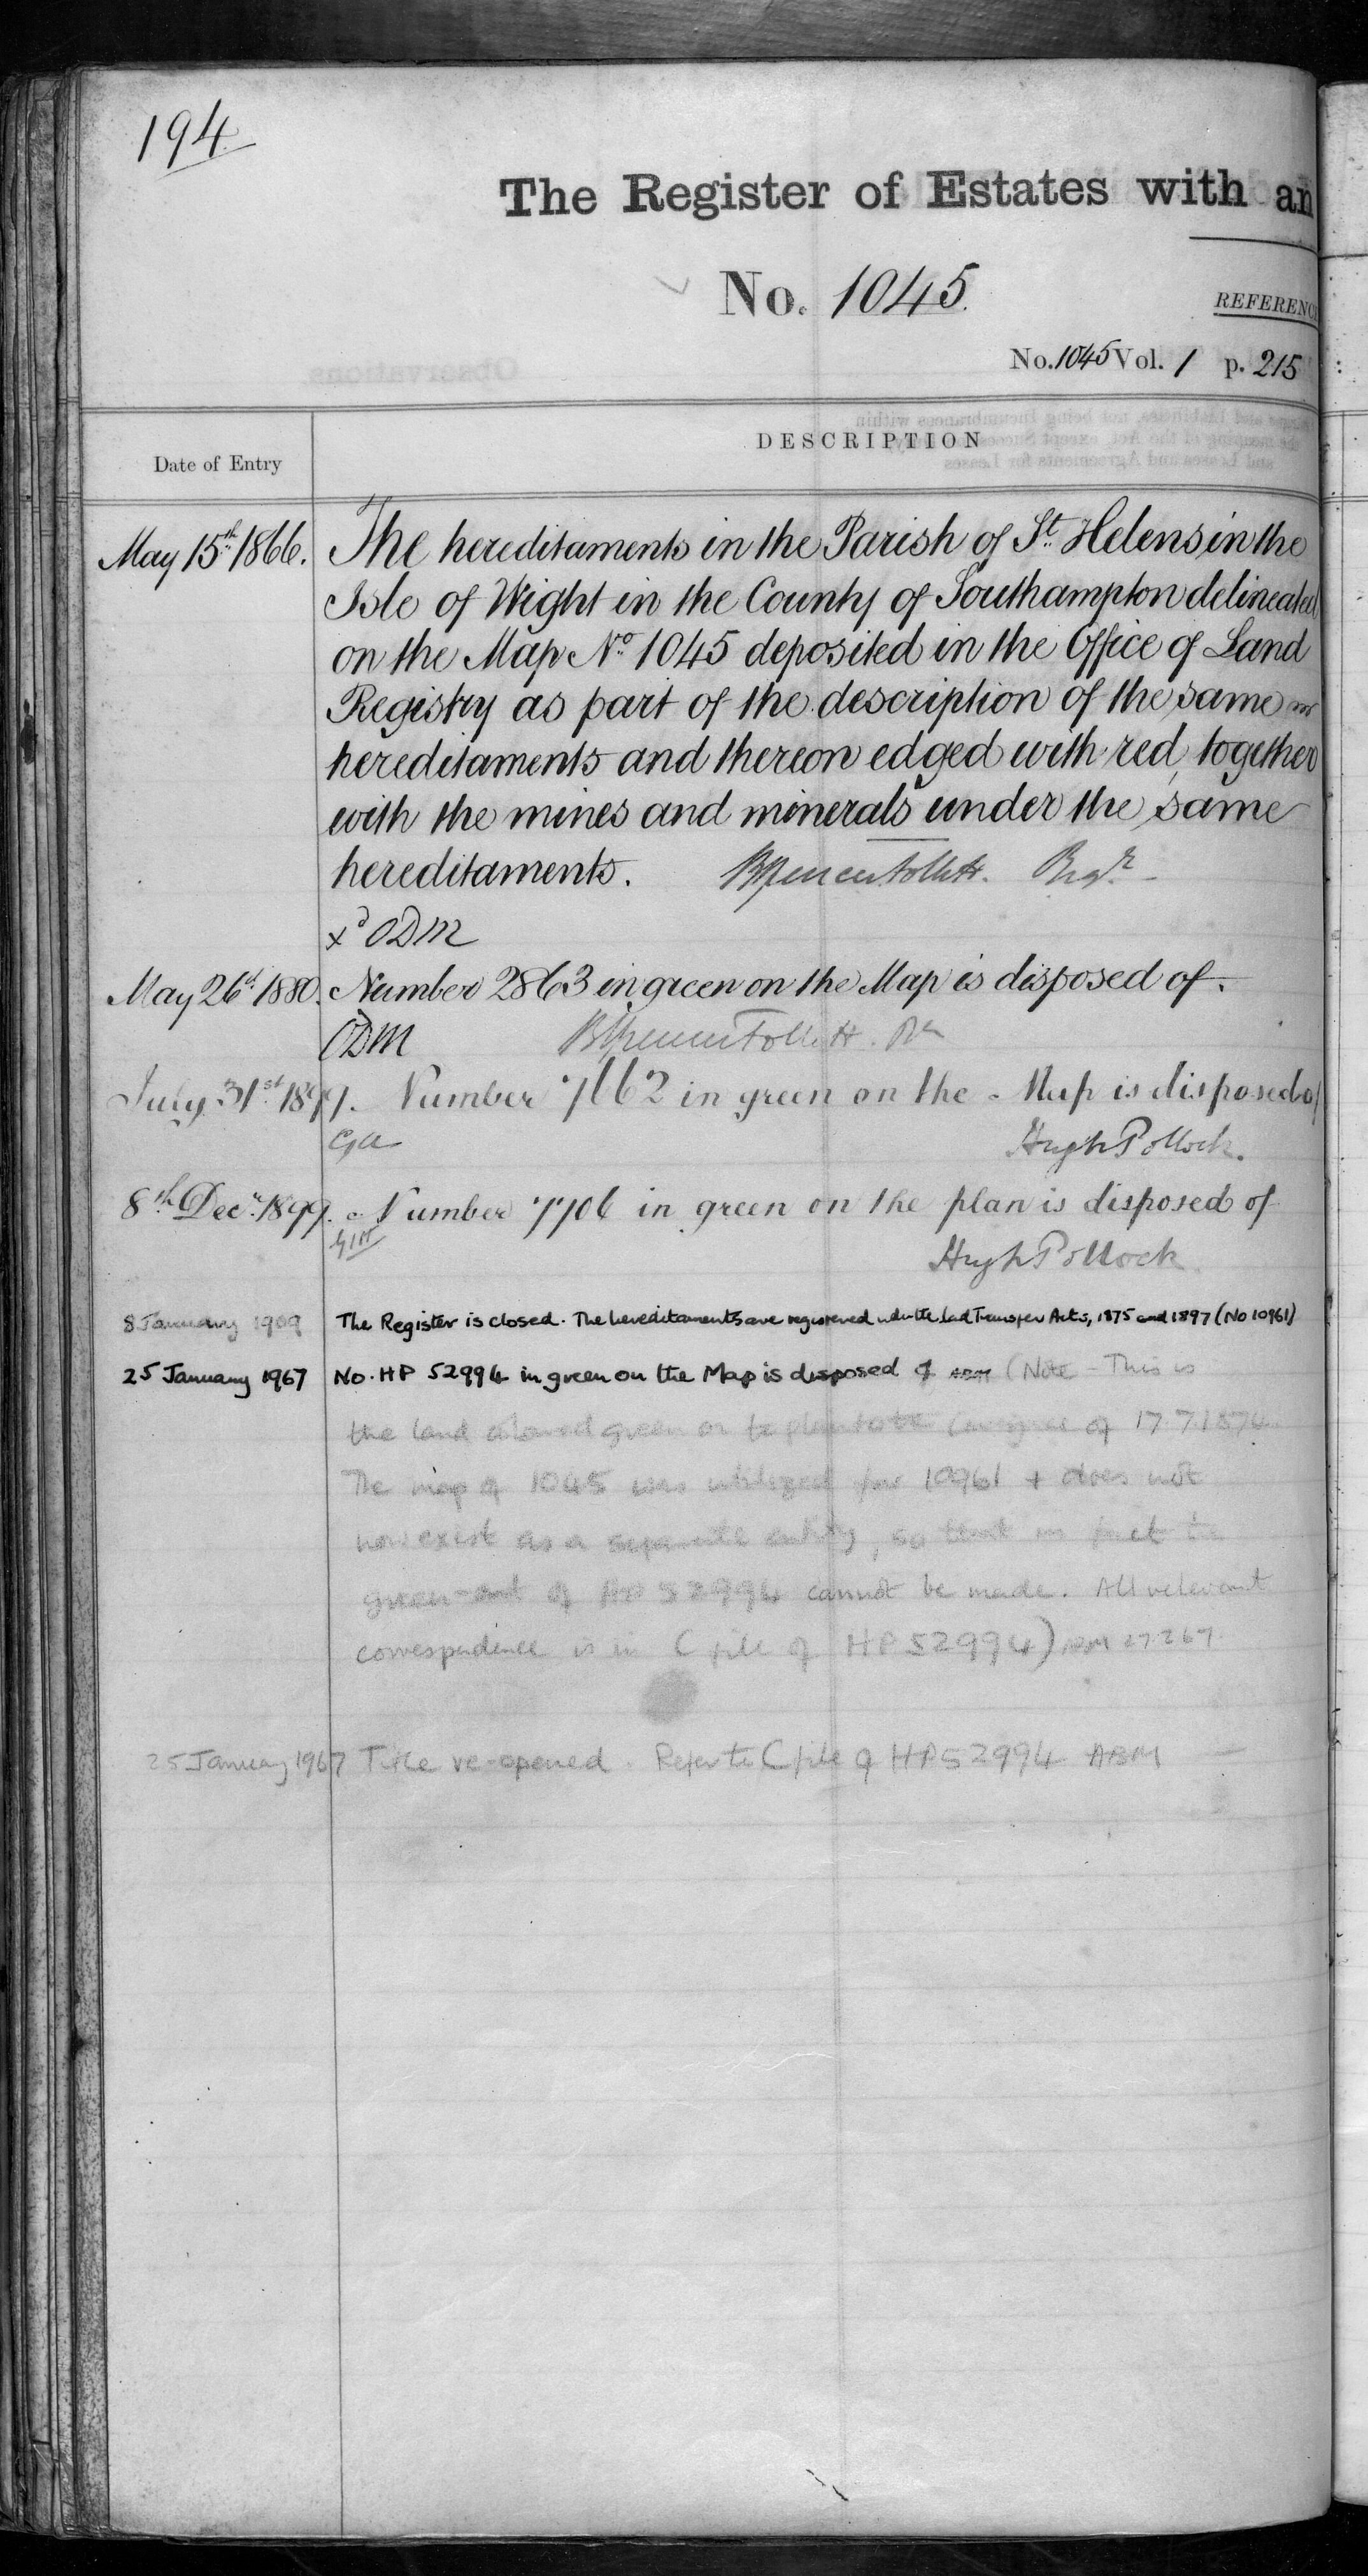 194
The Register of Estates with an
No. 1045.
REFERENC
No. 1045 Vol. 1 p. 215
Date of Entry
DESCRIPTION
May 15th 1866. The hereditaments in the Parish of St. Helens in the
Isle of Wight in the County of Southampton delineated
on the Map No. 1045 deposited in the Office of Land
Registry as part of the description of the same
hereditaments and thereon edged with red, together
with the mines and minerals under the same
hereditaments. B Spencer Follett. Regr.
xd ODM
May 26th 1880. Number 2863 in green on the Map is disposed of.
ODM B Spencer Follett. Rr
July 31st 1899. Number 7662 in green on the Map is disposed of
GA Hugh Pollock.
8th Decr. 1899. Number 7706 in green on the plan is disposed of
Hugh Pollock
8 January 1909 The Register is closed. The hereditaments are registered under the Land Transfer Acts, 1875 and 1897 (No 10961)
25 January 1967 No. HP 52994 in green on the Map is disposed of ABM (Note - This is
the land coloured green on the plan to the Conveyance of 17.7.1874.
The map of 1045 was utilized for 10961 + does not
now exist as a separate entity, so that in fact the
green-out of HP 52994 cannot be made. All relevant
correspondence is in C file of HP 52994) ABM 27.2.67.
25 January 1967 Title re-opened. Refer to C file of HP52994 ABM